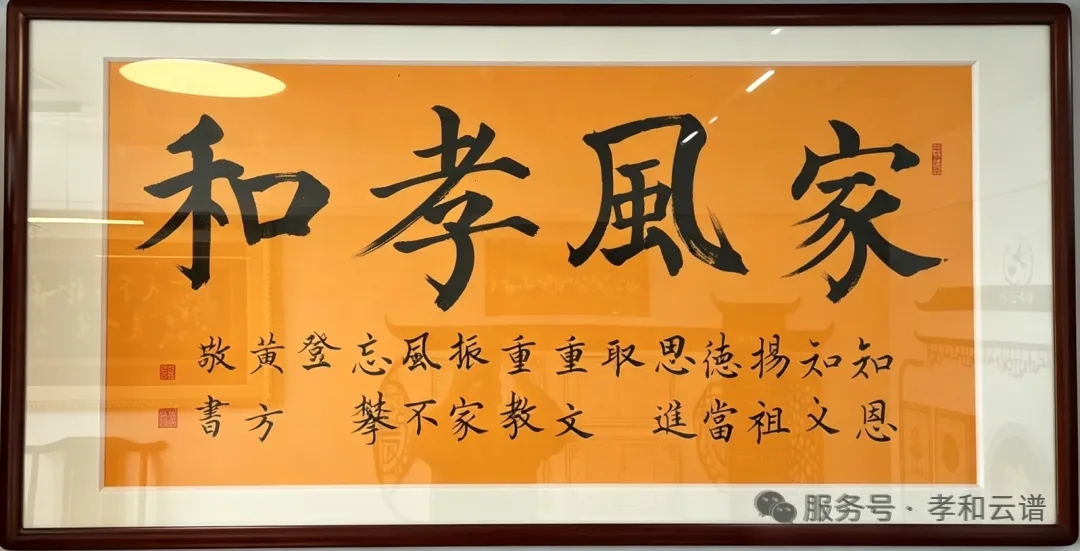 家風孝和
知恩
知文
揚祖
徳當
思進
取
重文
重教
振家
風不
忘攀
登
黄方
敬書
服务号 · 孝和云谱